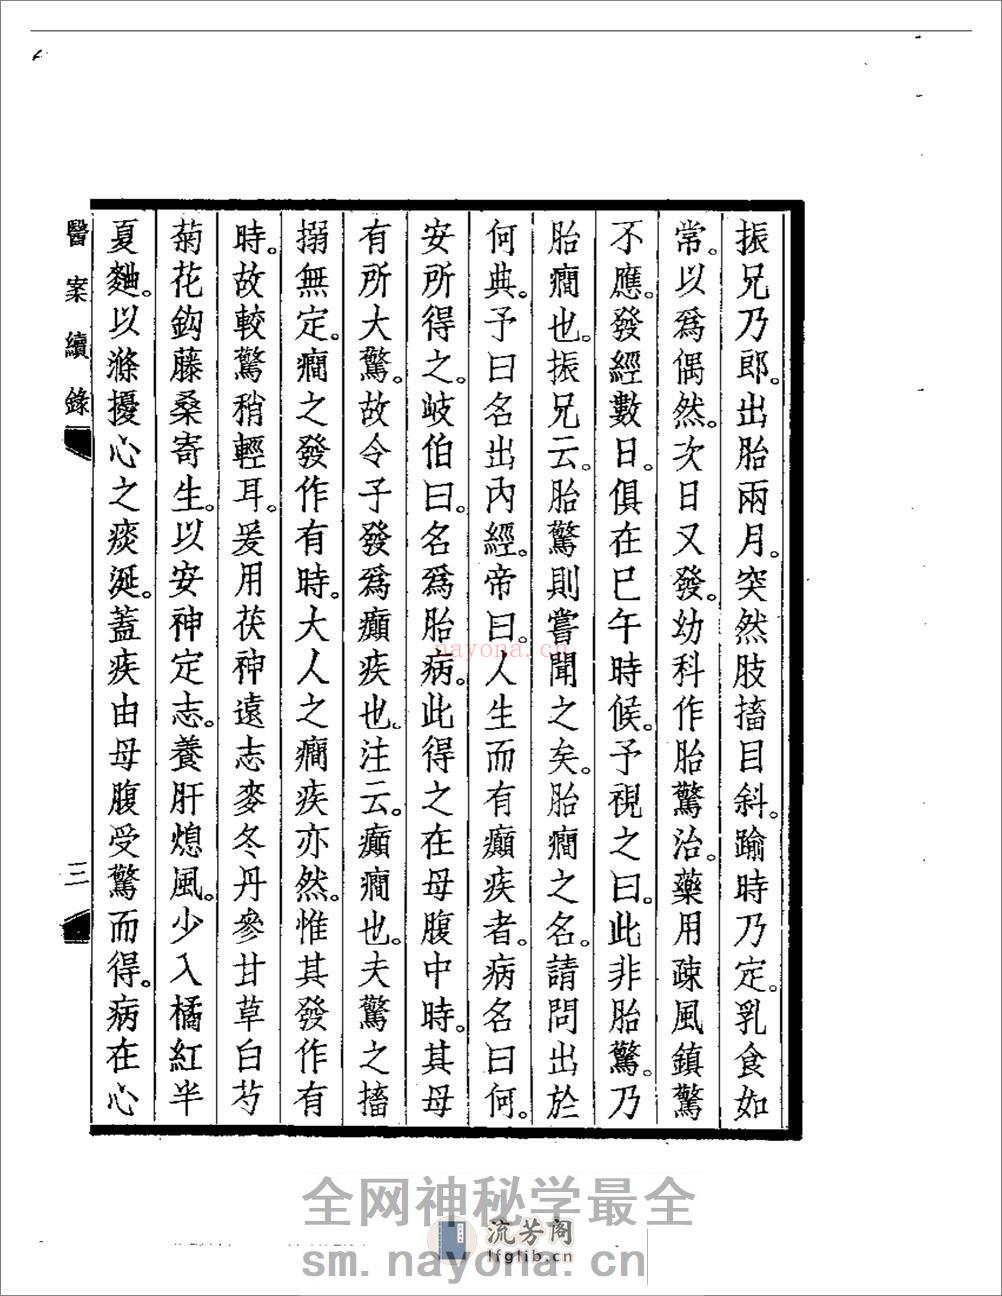 振兄乃郎。出胎兩月。突然肢搐目斜。踰時乃定。乳食如
常。以爲偶然。次日又發。幼科作胎驚治。藥用疎風鎮驚
不應。發經數日。俱在巳午時候。予視之曰。此非胎驚。乃
胎癇也。振兄云。胎驚則嘗聞之矣。胎癇之名。請問出於
何典。予曰名出內經。帝曰。人生而有癲疾者。病名曰何。
安所得之。岐伯曰。名爲胎病。此得之在母腹中時。其母
有所大驚。故令子發爲癲疾也。注云。癲癇也。夫驚之搐
搦無定。癇之發作有時。大人之癇疾亦然。惟其發作有
時。故較驚稍輕耳。爰用茯神遠志麥冬丹參甘草白芍
菊花鈎藤桑寄生。以安神定志。養肝熄風。少入橘紅半
夏麯。以滌擾心之痰涎。蓋疾由母腹受驚而得。病在心
醫案續錄
三
nayona.cn
全网神秘学最全
流芳阁
lfglib.cn
sm.nayona.cn